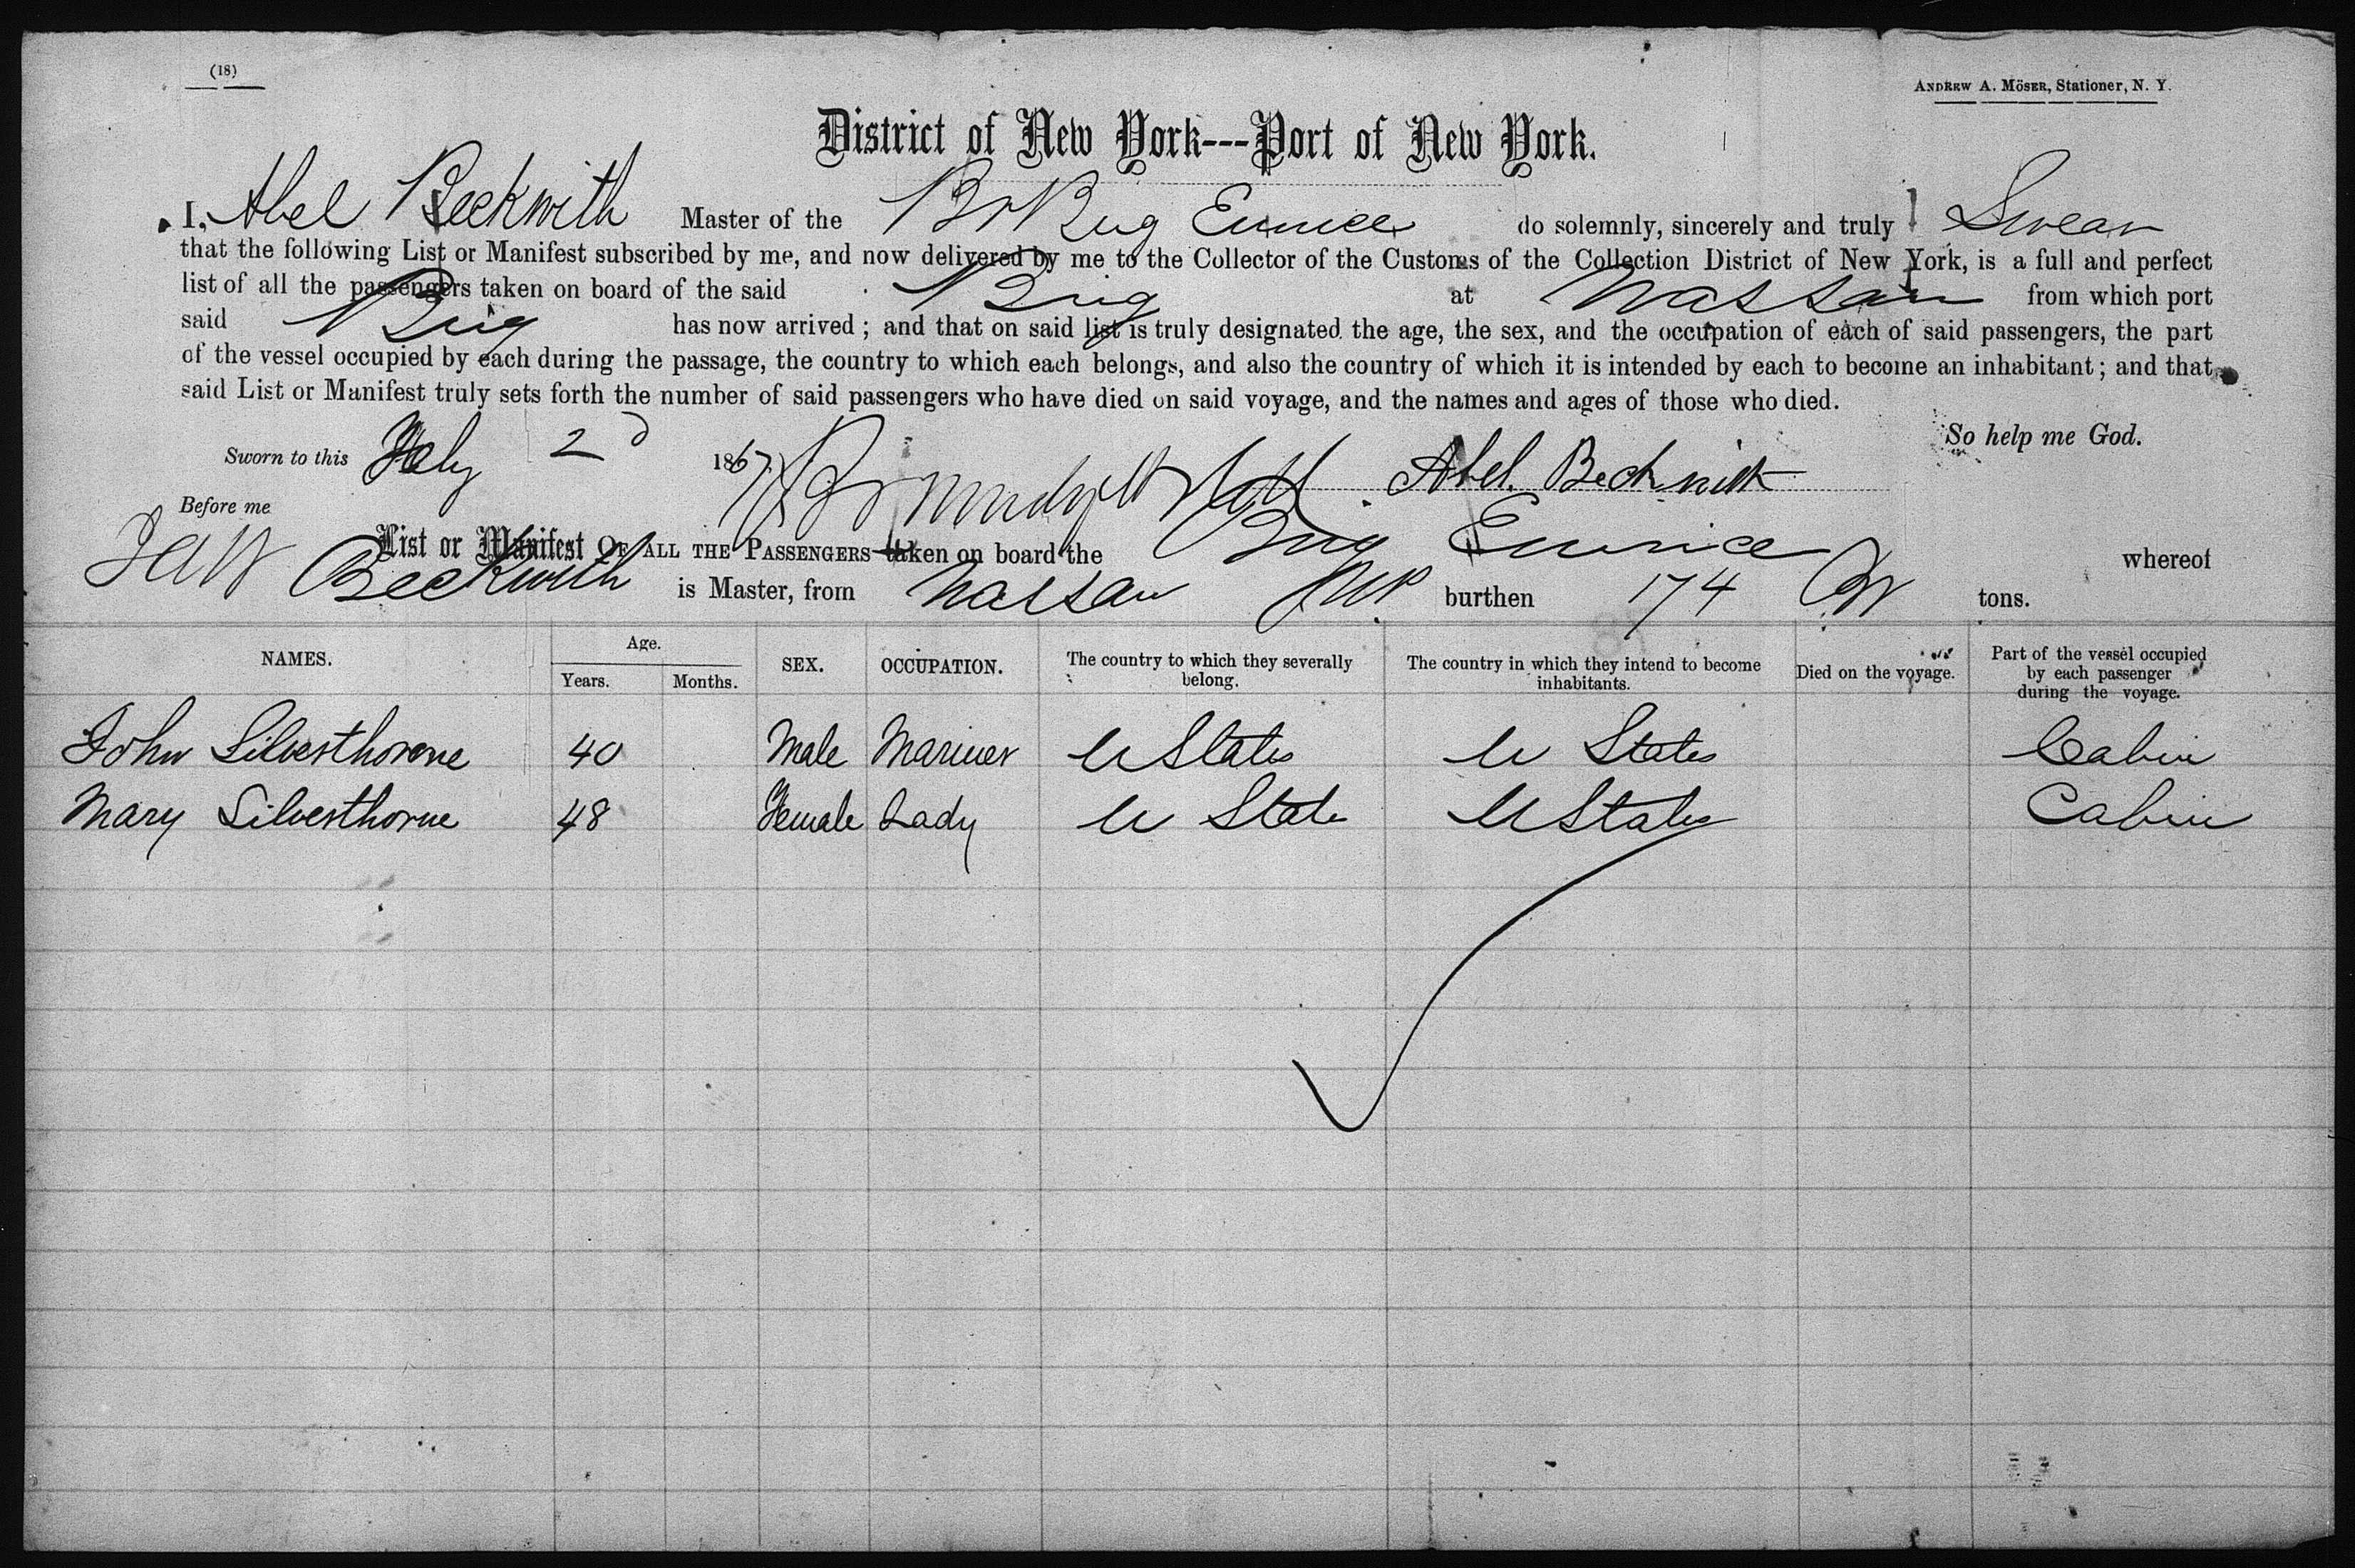 (18)
ANDREW A. MÖSER, Stationer, N. Y.
District of New York---Port of New York.
I, Abel Beckwith Master of the Br Brig Eunice do solemnly, sincerely and truly Swear
that the following List or Manifest subscribed by me, and now delivered by me to the Collector of the Customs of the Collection District of New York, is a full and perfect
list of all the passengers taken on board of the said Brig at Nassau from which port
said Brig has now arrived; and that on said list is truly designated the age, the sex, and the occupation of each of said passengers, the part
of the vessel occupied by each during the passage, the country to which each belongs, and also the country of which it is intended by each to become an inhabitant; and that
said List or Manifest truly sets forth the number of said passengers who have died on said voyage, and the names and ages of those who died.
So help me God.
Sworn to this July 2d 1867 Abel Beckwith
Before me
List or Manifest OF ALL THE PASSENGERS taken on board the Brig Eunice whereof
Beckwith is Master, from Nassau NP burthen 174 tons.
NAMES. Age. Years. Months. SEX. OCCUPATION. The country to which they severally belong. The country in which they intend to become inhabitants. Died on the voyage. Part of the vessel occupied by each passenger during the voyage.
John Silversthorne 40 Male Mariner U States U States Cabin
Mary Silversthorne 48 Female Lady U State U States Cabin